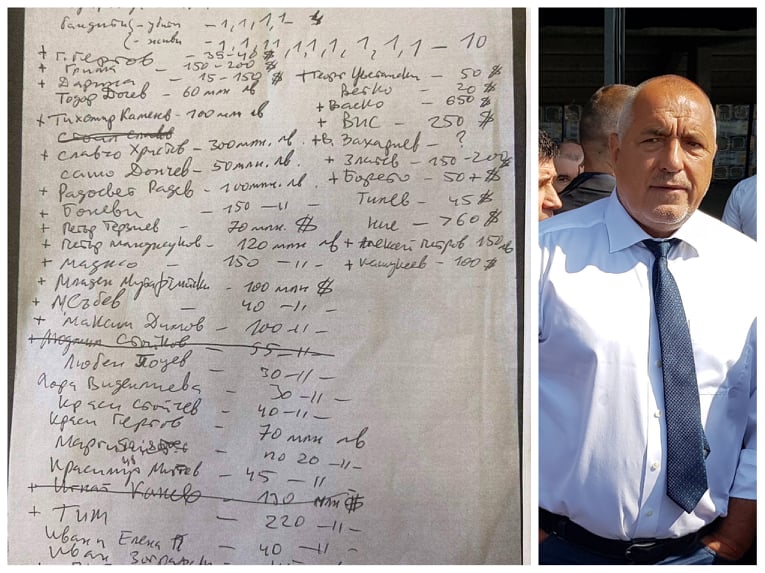 бандити - убити - 1, 1, 1, 1 - 4
- живи - 1, 1, 11, 1, 1, 1, 1, 1, 1 - 10
+ Г. Гергов - 35-40 $
+ Гриша - 150-200 $
+ Дариха - 15-150 $
Тодор Дочев - 60 млн лв
+ Тихомир Каменов - 100 млн лв
+ Славчо Христов - 300 млн. лв.
Сашо Дончев - 50 млн.
+ Радосвет Радев - 100 млн. лв
+ Боневи - 150 -11-
+ Петър Терзиев - 70 млн. $
+ Петър Манджуков - 120 млн лв
+ Маджо - 150 -11-
+ Младен Мутафчийски - 100 млн $
+ - 40 -11-
+ Максим Димов - 100 -11-
+ Людмил Стойков - 55 -11-
Любен - 30 -11-
Лора Виденлиева - 30 -11-
Краси Стойчев - 40 -11-
Краси Гергов - 70 млн лв
- по 20 -11-
Красимир - 45 -11-
+ Игнат Канев - 170 млн $
+ ТИМ - 220 -11-
Иван и Елена П - 40 -11-
Иван
+ Цветански - 50 $
Ветко - 20 $
+ Васко - 650 $
+ ВИС - 250 $
+ В. Захариев - ?
+ Златев - 150-200 $
+ Борето - 50 + $
Тилев - 45 $
ние - > 60 $
+ Алексей Петров 150 лв
+ - 100 $